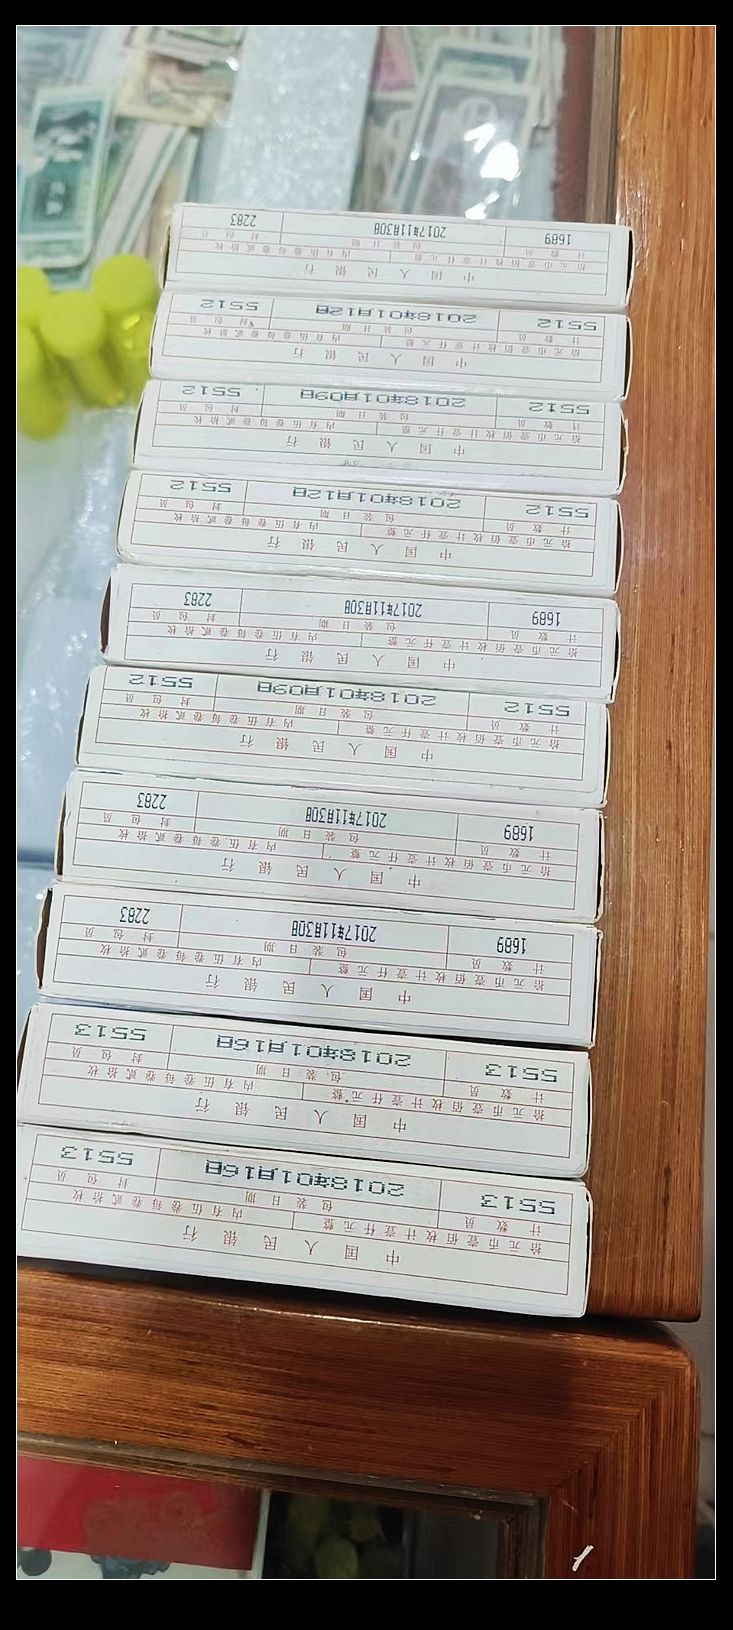 中国人民银行
拾元币壹佰枚计壹仟元整 内有伍卷每卷贰拾枚
计数员 包装日期 封包员
5513 2018年01月16日 5513
中国人民银行
拾元币壹佰枚计壹仟元整 内有伍卷每卷贰拾枚
计数员 包装日期 封包员
5513 2018年01月16日 5513
中国人民银行
拾元币壹佰枚计壹仟元整 内有伍卷每卷贰拾枚
计数员 包装日期 封包员
1689 2017年11月30日 2283
中国人民银行
拾元币壹佰枚计壹仟元整 内有伍卷每卷贰拾枚
计数员 包装日期 封包员
1689 2017年11月30日 2283
中国人民银行
拾元币壹佰枚计壹仟元整 内有伍卷每卷贰拾枚
计数员 包装日期 封包员
5512 2018年01月09日 5512
中国人民银行
拾元币壹佰枚计壹仟元整 内有伍卷每卷贰拾枚
计数员 包装日期 封包员
1689 2017年11月30日 2283
中国人民银行
拾元币壹佰枚计壹仟元整 内有伍卷每卷贰拾枚
计数员 包装日期 封包员
5512 2018年01月12日 5512
中国人民银行
拾元币壹佰枚计壹仟元整 内有伍卷每卷贰拾枚
计数员 包装日期 封包员
5512 2018年01月09日 5512
中国人民银行
拾元币壹佰枚计壹仟元整 内有伍卷每卷贰拾枚
计数员 包装日期 封包员
5512 2018年01月12日 5512
中国人民银行
拾元币壹佰枚计壹仟元整 内有伍卷每卷贰拾枚
计数员 包装日期 封包员
1689 2017年11月30日 2283